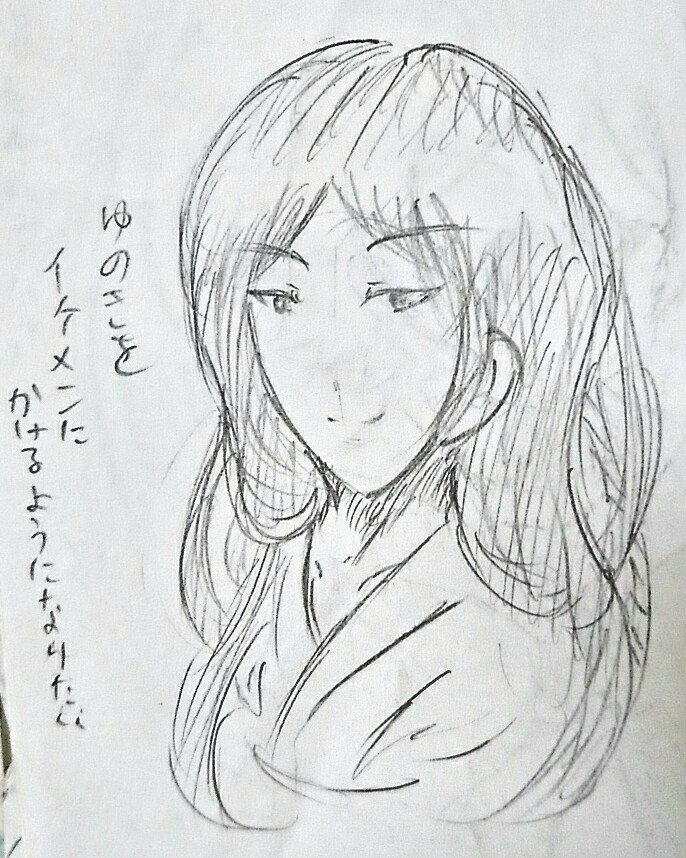 ゆのさを
イケメンに
かけるようになりたい